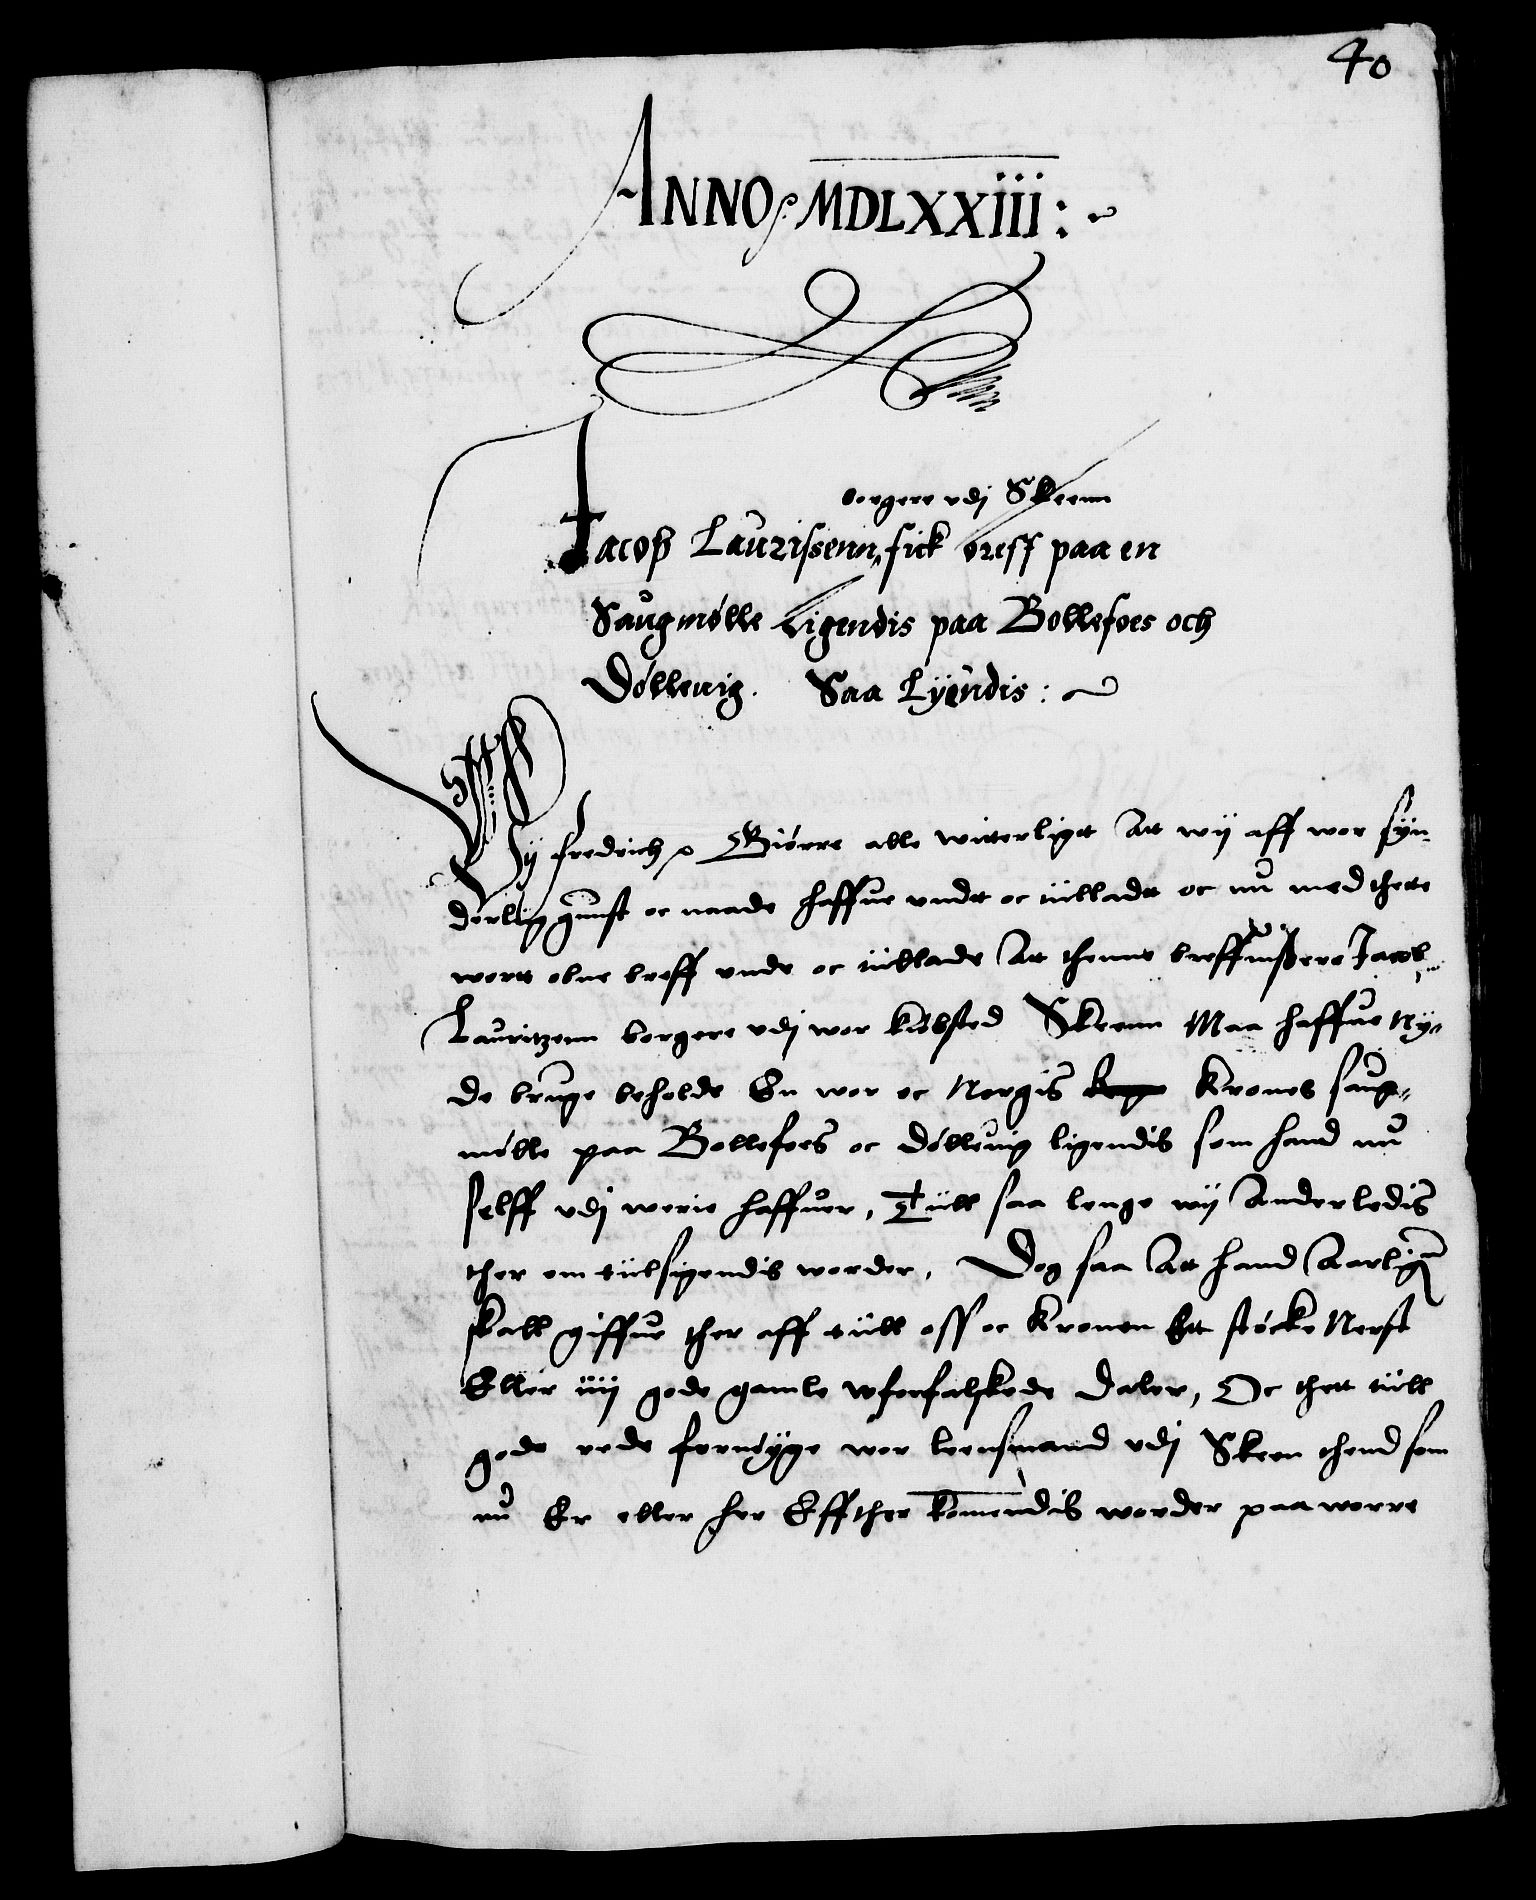 40
ANNO MDLXXIII:
borgere vdj Skeenn
Jacop Laurissenn fick breff paa en
Saugmølle Ligendis paa Bollefoes och
Dølleuig. Saa Lyendis:
Wij Fredrich Giørre alle witterligt Att wij aff wor syn-
derlig gunst oc naade haffue undt oc tilladt oc nu med thette
wort obne breff unde oc tillade Att thenne breffuisere Jacob
Lauritzenn borgere udj wor kiøbsted Skeenn Maa haffue Ny-
de bruge beholde En wor oc Norgis Krones saug-
mølle paa Bollefoes oc Dølleuig ligendis som hand nu
selff udj werie haffuer, Tiill saa lenge wij Anderledis
ther om tiilsigendis worder, Dog saa Att hand Aarligen
skall giffue ther aff tiill oss oc Kronen Ett støcke Nerst
Eller iiij gode gamle wforfalskede Daler, Oc thett tiill
gode rede fornøyge wor leensmand udj Skeen thend som
nu Er eller her Effther komendis worder paa worre